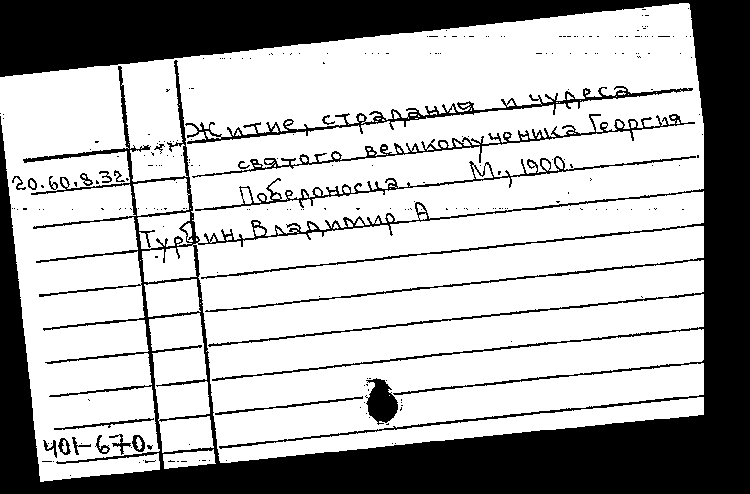 Житие, страдания и чудеса
святого великомученика Георгия
20.60.8.32.
Победоносца. М., 1900.
Турбин, Владимир А
401-670.